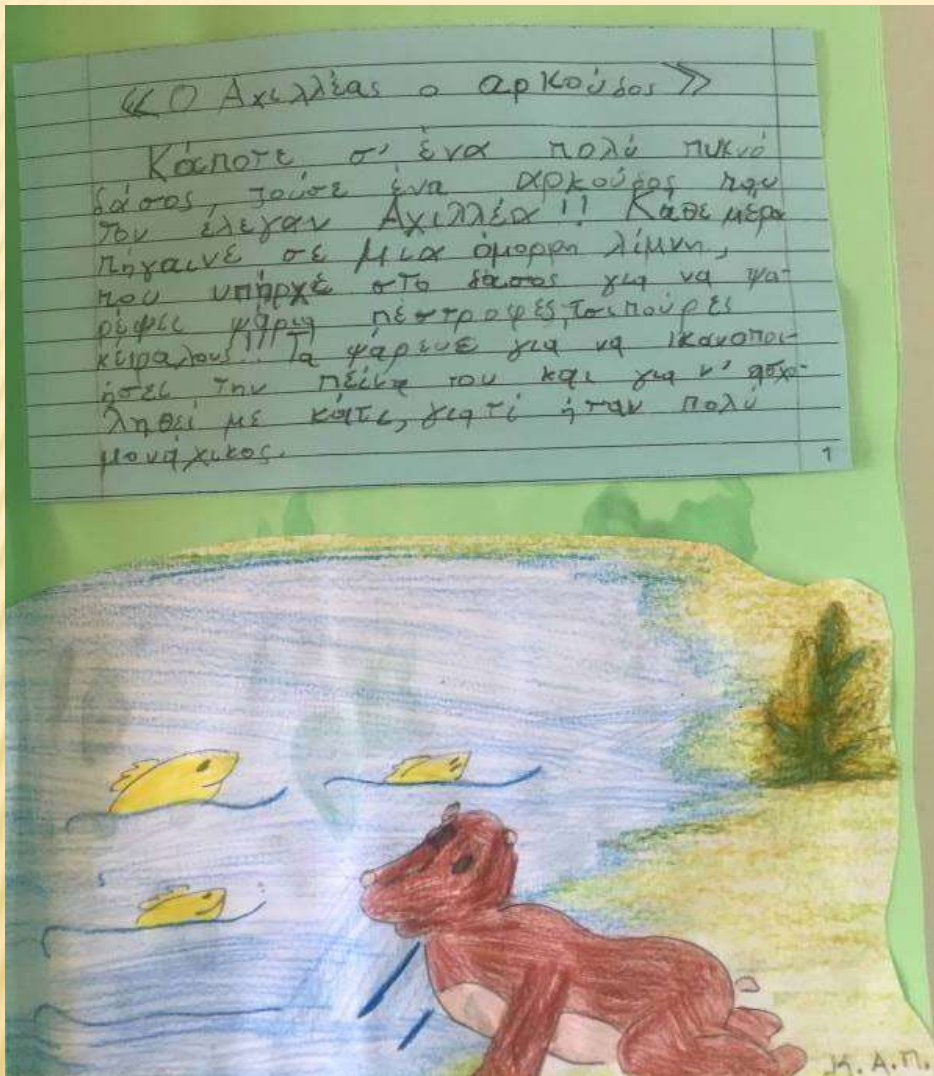 « Ο Αχιλλέας ο αρκούδος »
Κάποτε σ' ένα πολύ πυκνό
δάσος, ζούσε ένα αρκούδος που
τον έλεγαν Αχιλλέα!! Κάθε μέρα
πήγαινε σε μια όμορφη λίμνη,
που υπήρχε στο δάσος για να ψα-
ρέψει ψάρια πέστροφες, τσιπούρες
κέφαλους!! Τα ψάρευε για να ικανοποι-
ήσει την πείνα του και για ν' ασχο-
ληθεί με κάτι, γιατί ήταν πολύ
μοναχικος.
1
Κ. Α. Π.